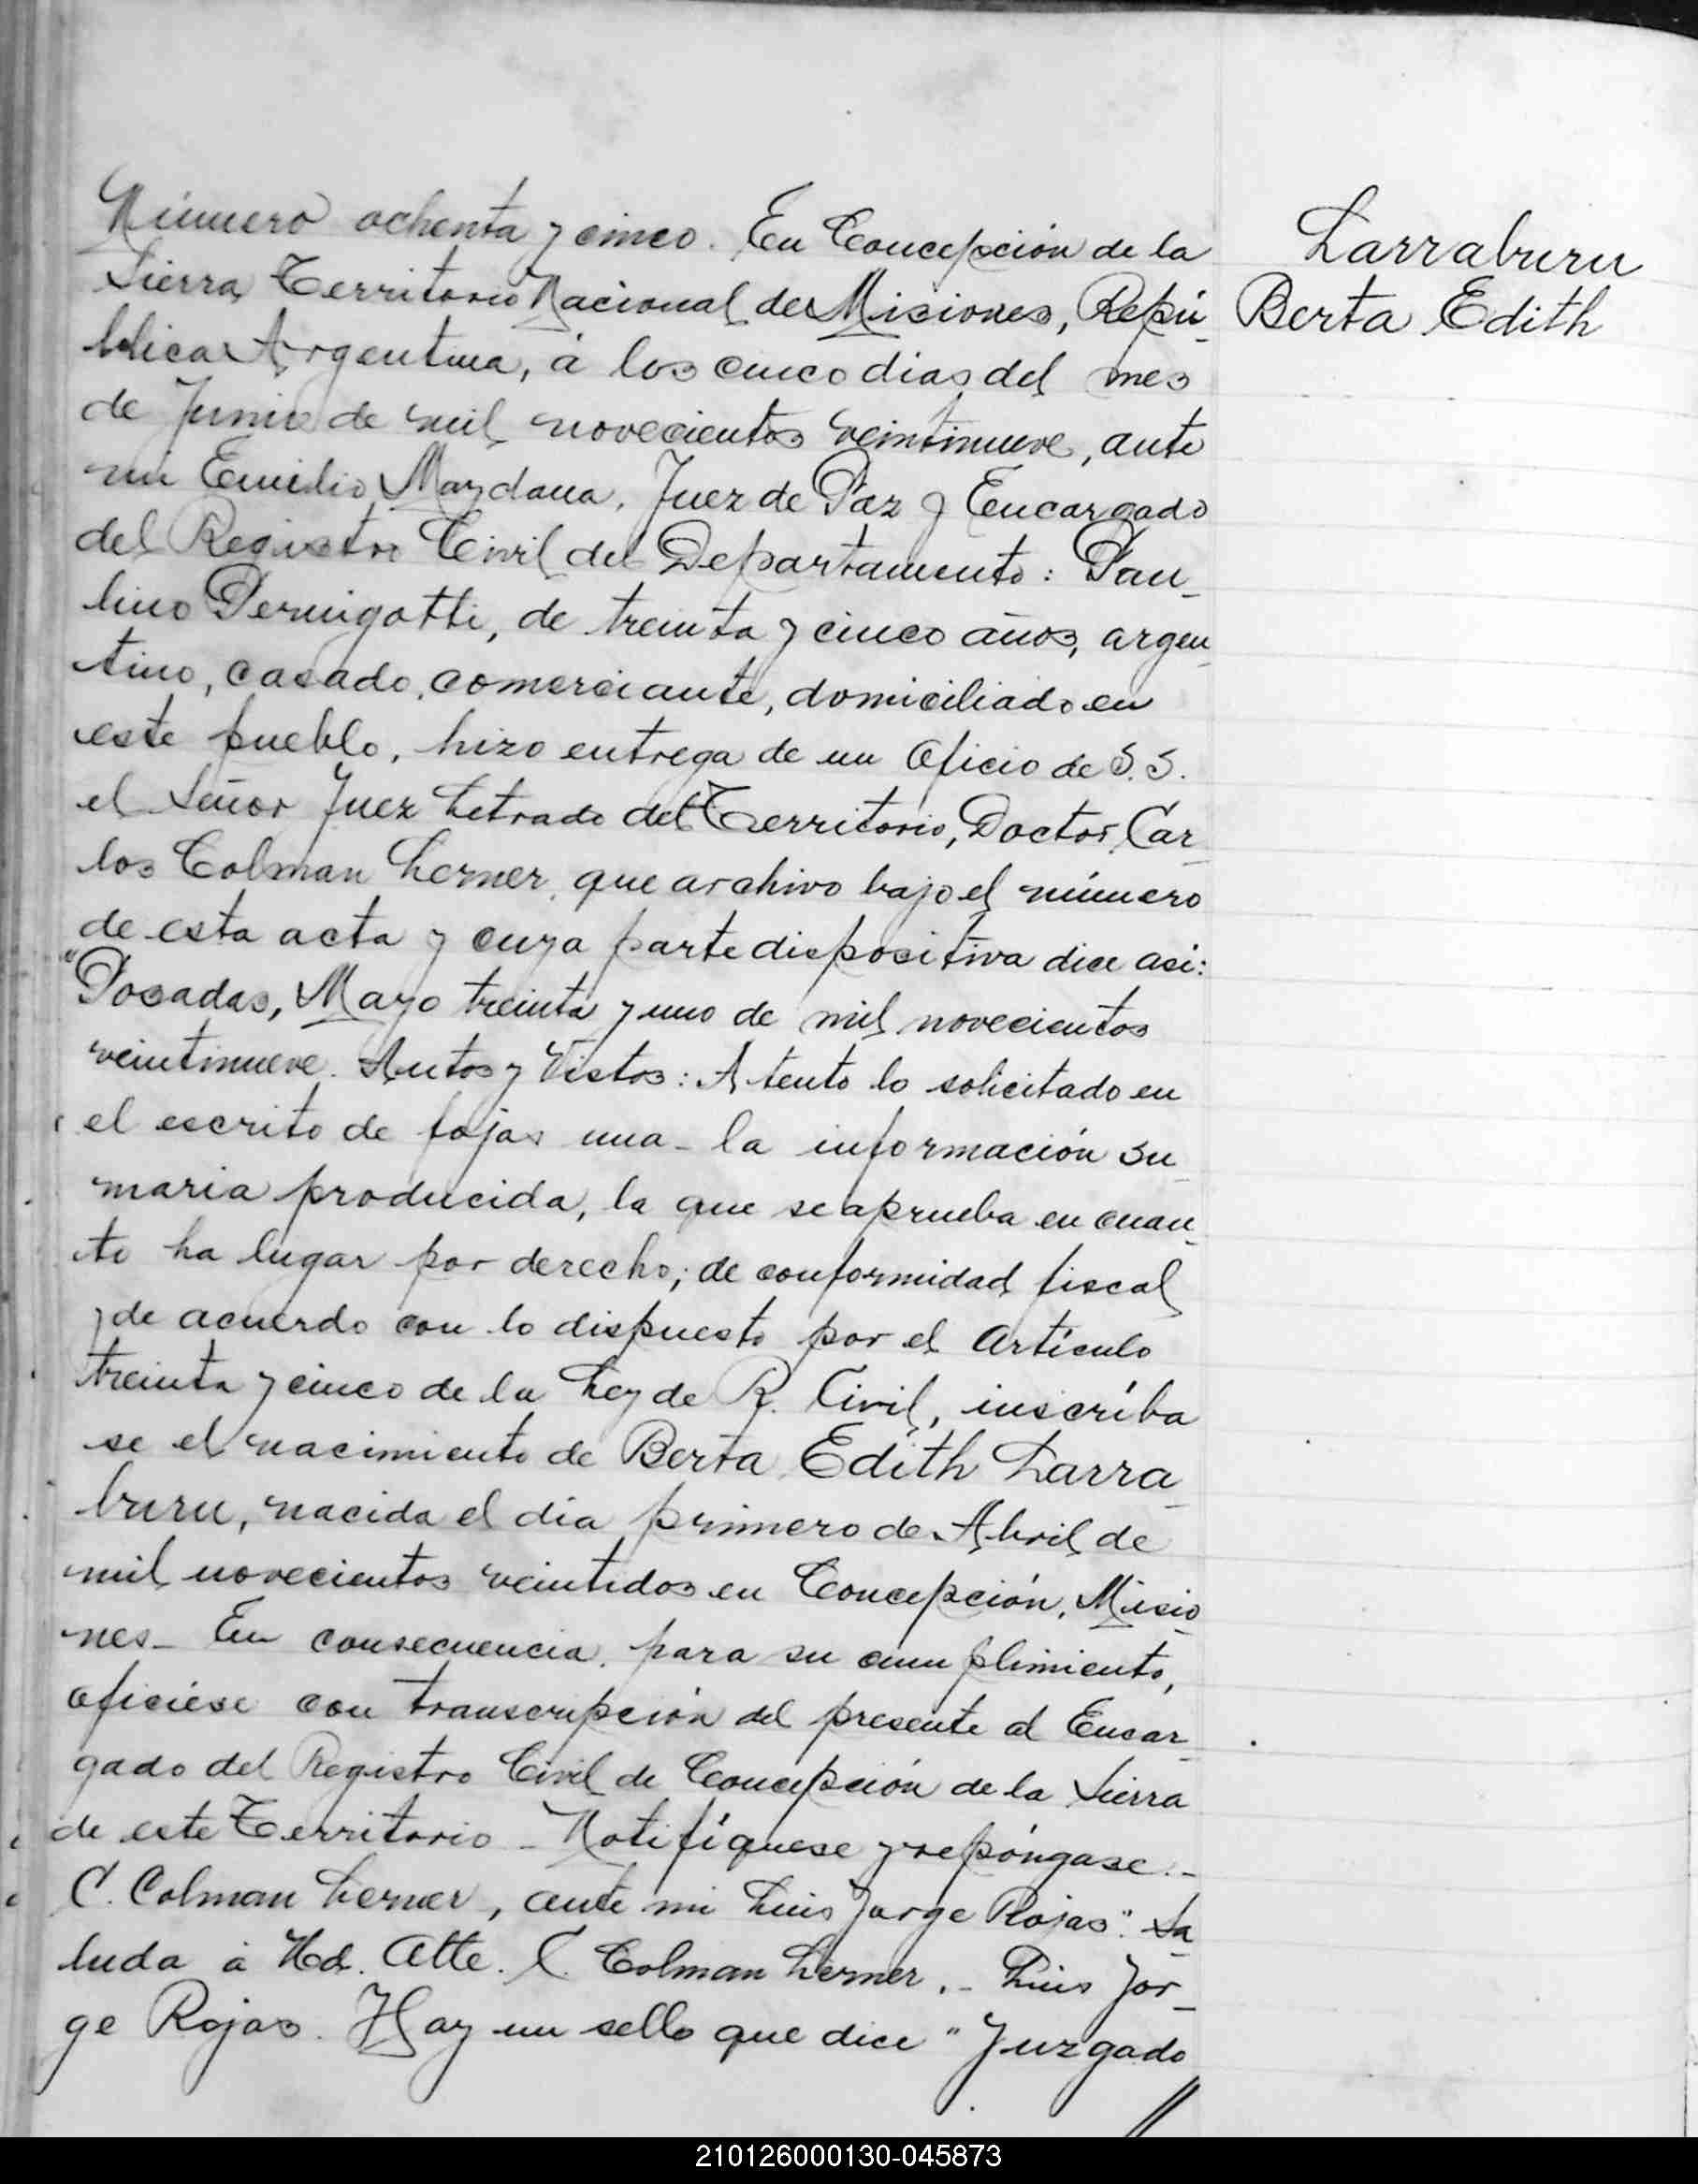 Número ochenta y cinco. En Concepción de la
Sierra, Territorio Nacional de Misiones, Repú-
blica Argentina, á los cinco dias del mes
de Junio de mil novecientos veintinueve, ante
mi Emilio Maydana, Juez de Paz y Encargado
del Registro Civil del Departamento: Pau-
lino Pernigotti, de treinta y cinco años, argen-
tino, casado, comerciante, domiciliado en
este pueblo, hizo entrega de un Oficio de S.S.
el Señor Juez Letrado del Territorio, Doctor Car-
los Colman Lerner, que archivo bajo el número
de esta acta y cuya parte dispositiva dice asi:
"Posadas, Mayo treinta y uno de mil novecientos
veintinueve. Autos y Vistos: Atento lo solicitado en
el escrito de fojas una - la información su-
maria producida, la que se aprueba en cuan-
to ha lugar por derecho; de conformidad fiscal
y de acuerdo con lo dispuesto por el Artículo
treinta y cinco de la Ley de R. Civil, inscríba
se el nacimiento de Berta Edith Larra-
buru, nacida el dia primero de Abril de
mil novecientos veintidos en Concepción, Misio-
nes - En consecuencia, para su cumplimiento,
oficiése con transcripción del presente al Encar-
gado del Registro Civil de Concepción de la Sierra
de este Territorio - Notifíquese y repóngase.-
C. Colman Lerner, ante mi Luis Jorge Rojas". Sa-
luda á Ud. Atte. C. Colman Lerner.- Luis Jor-
ge Rojas. Hay un sello que dice "Juzgado
//
Larraburu
Berta Edith
210126000130-045873